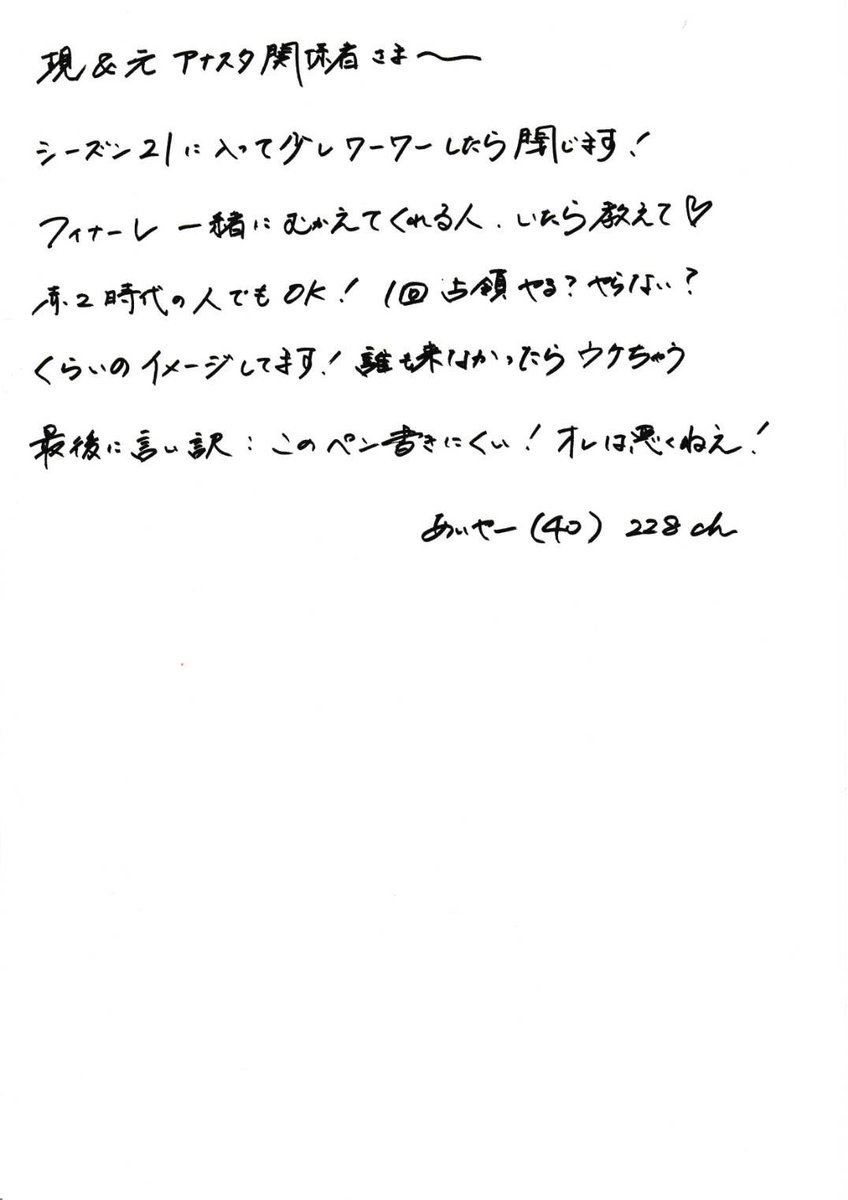 現&元 アナスタ関係者さま〜
シーズン21に入って少しワーワーしたら閉じます!
フィナーレ 一緒にむかえてくれる人、いたら教えて♡
赤2時代の人でもOK! 1回占領やる?やらない?
くらいのイメージしてます! 誰も来なかったらウケちゃう
最後に言い訳:このペン書きにくい! オレは悪くねえ!
めいやー(40) 228ch